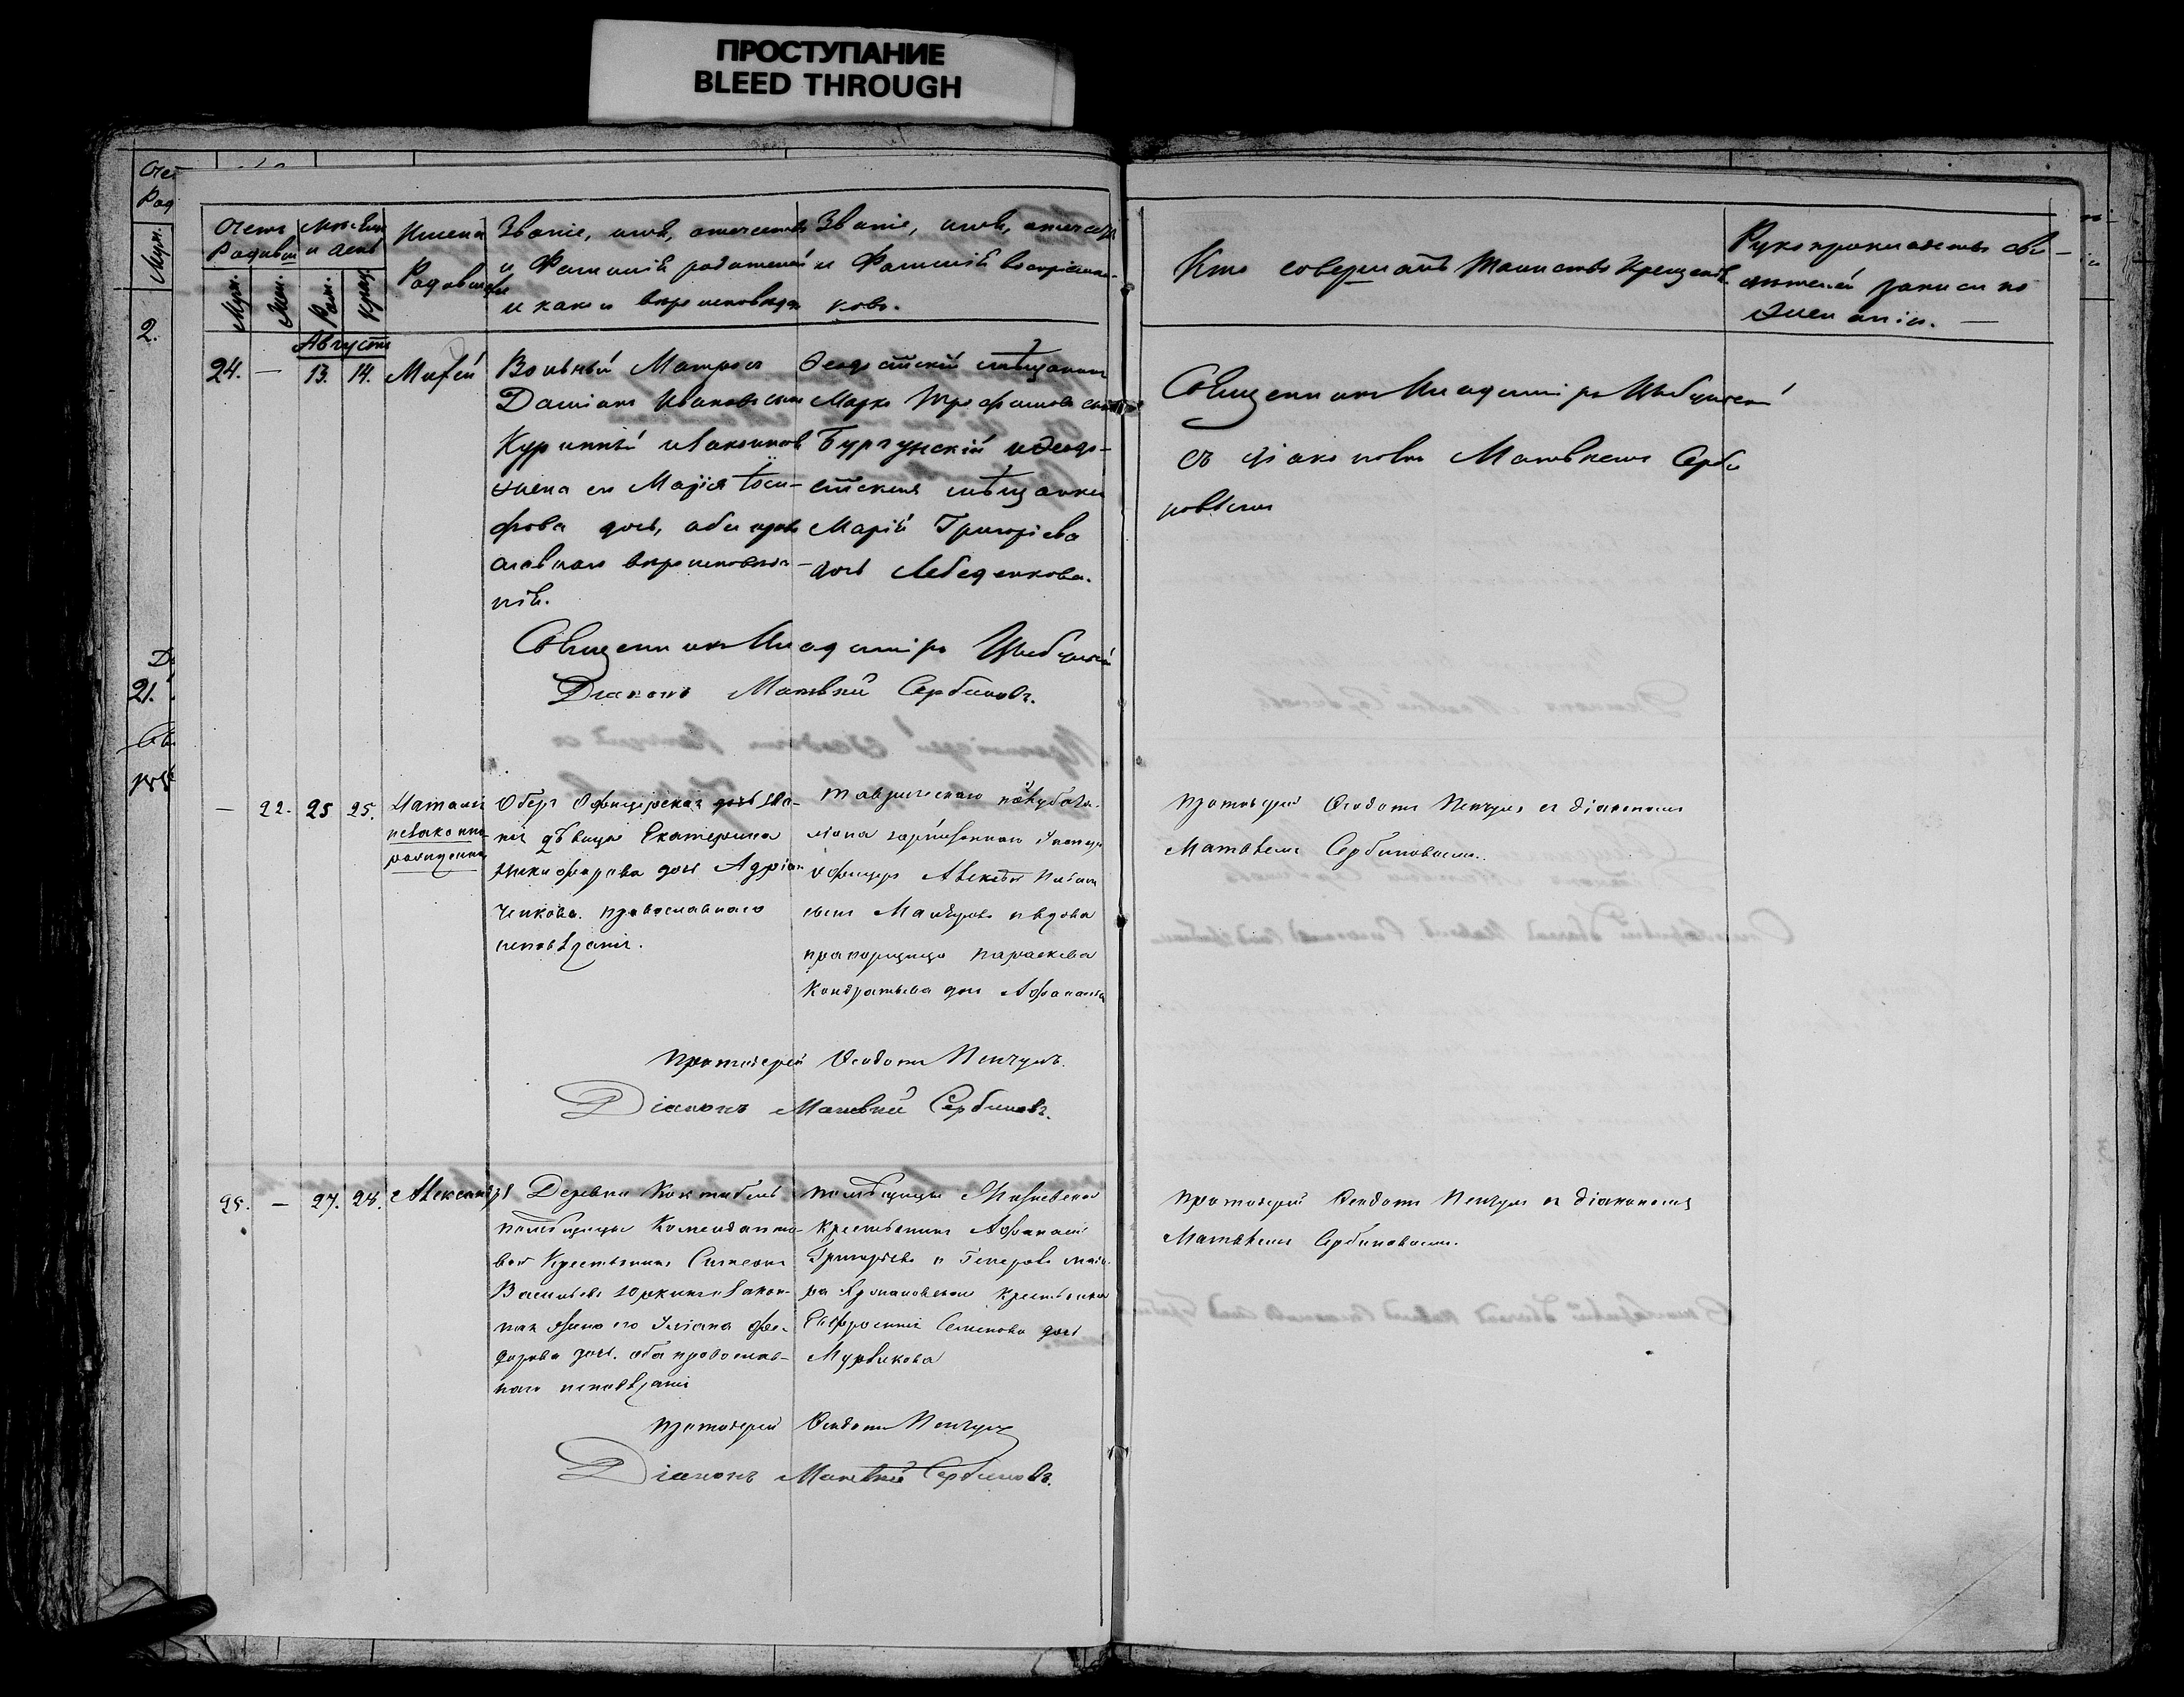 ПРОСТУПАНИЕ
BLEED THROUGH
Счетъ
Родившихся
Муж.
Жен.
Мѣсяцъ
и день
Рож.
Крещ.
Имена
Родившихся
Званіе, имя, отчество
и Фамилія родителей
и какого вѣроисповѣда
Званіе, имя, отчество
и Фамилія воспріемни-
ковъ.
Кто совершалъ таинство Крещенія
Рукоприкладство сви-
дѣтелей записи по
желанію.
Августъ
24. — 13. 14.
Вольный Матросъ
Даміанъ Ивановъ сынъ
Куринный и законная
жена его Марія Іоси-
фова дочь, оба право
славнаго вѣроисповѣда-
нія.
Ѳеодосійскій мѣщанинъ
Марко Трофимовъ сынъ
Бургунскій и Ѳеодо-
сійская мѣщанка
Марія Григоріева
дочь Лебеденкова.
Священникъ Владиміръ
Діаконъ Матвѣй Сербиновъ.
Священникъ Владиміръ
съ діакономъ Матвѣемъ Серби
новымъ
— 22. 25 25.
Наталія
незаконно
рожденна
Оберъ Офицерская дочь
дѣвица Екатерина
Никифорова дочь Адріан
ченкова. православнаго
исповѣданія.
Таврическаго
ліона гарнизоннаго Унтеръ
офицеръ Алексѣй
сынъ вдова
прапорщица Параскева
Кондратьева дочь
Протоіерей Ѳеодотъ Пенчулъ.
Діаконъ Матвѣй Сербиновъ.
Протоіерей Ѳеодотъ Пенчулъ съ діакономъ
Матвѣемъ Сербиновымъ.
25. — 27. 28. Александръ
Деревни Коктебель
помѣщицы
Крестьянинъ Симеонъ
Васильевъ и закон-
ная жена его Уліана Фео-
дорова дочь. оба православ-
наго исповѣданія
помѣщицы
крестьянинъ Афанасій
Григорьевъ и Генералъ маіо-
ра крестьянка
Евфросинія Семенова дочь
Протоіерей Ѳеодотъ Пенчулъ
Діаконъ Матвѣй Сербиновъ.
Протоіерей Ѳеодотъ Пенчулъ съ діакономъ
Матвѣемъ Сербиновымъ.